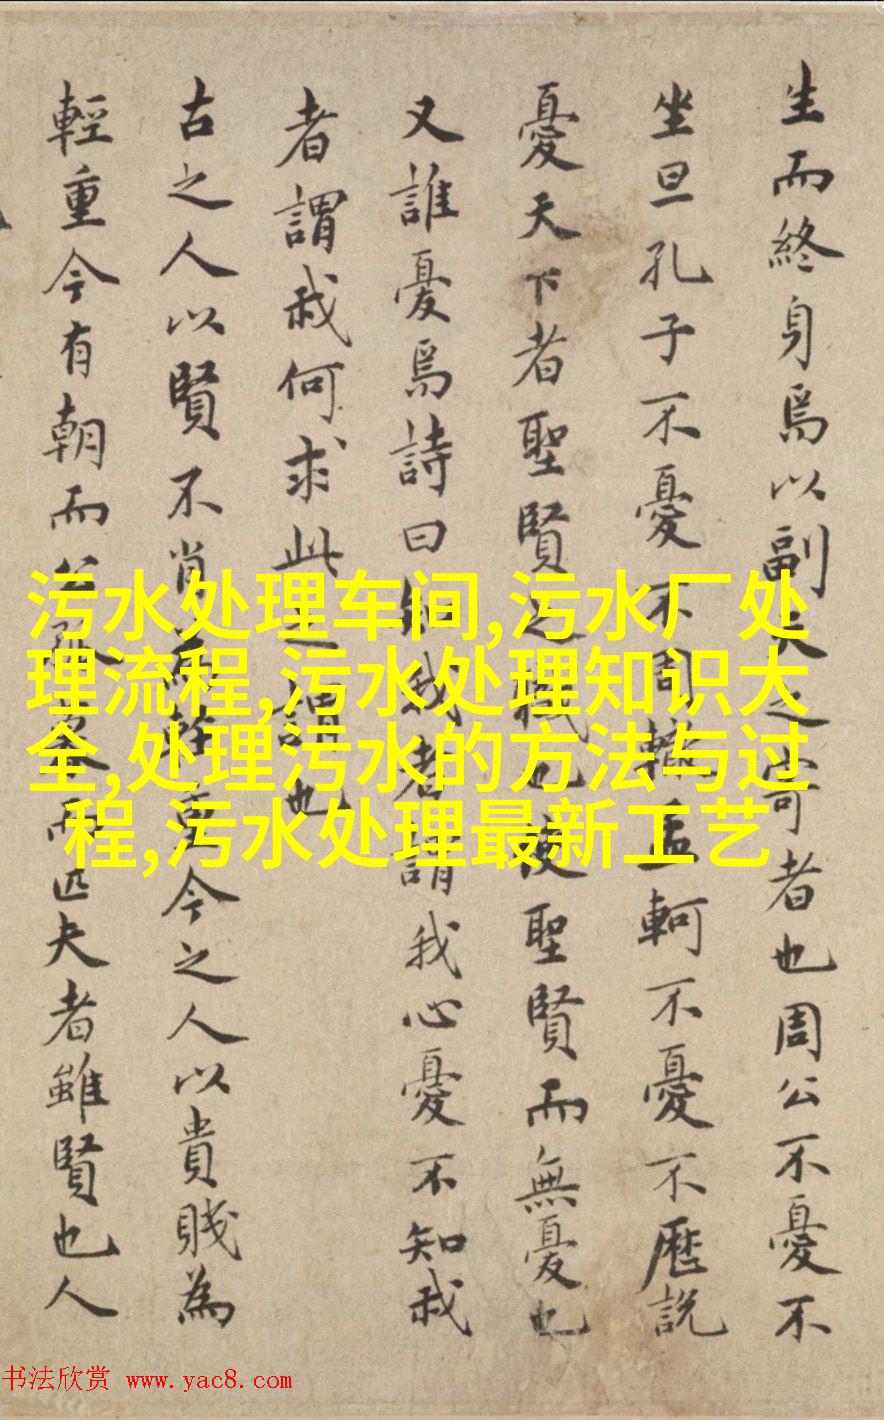 生而終身焉以副之者也周公不憂不
坐旦孔子不憂不周轍孟軻不憂不歷説
憂天下者聖賢之職也使聖賢而無憂也
又誰憂焉詩曰知我者謂我心憂不知我
者謂我何求此之謂也
古之人以賢不肖為輕重今之人以貴賤為
輕重今有朝而公卿暮而匹夫者雖賢也人
污水处理车间,污水厂处
理流程,污水处理知识大
全,处理污水的方法与过
程,污水处理最新工艺
书法欣赏 www.yac8.com